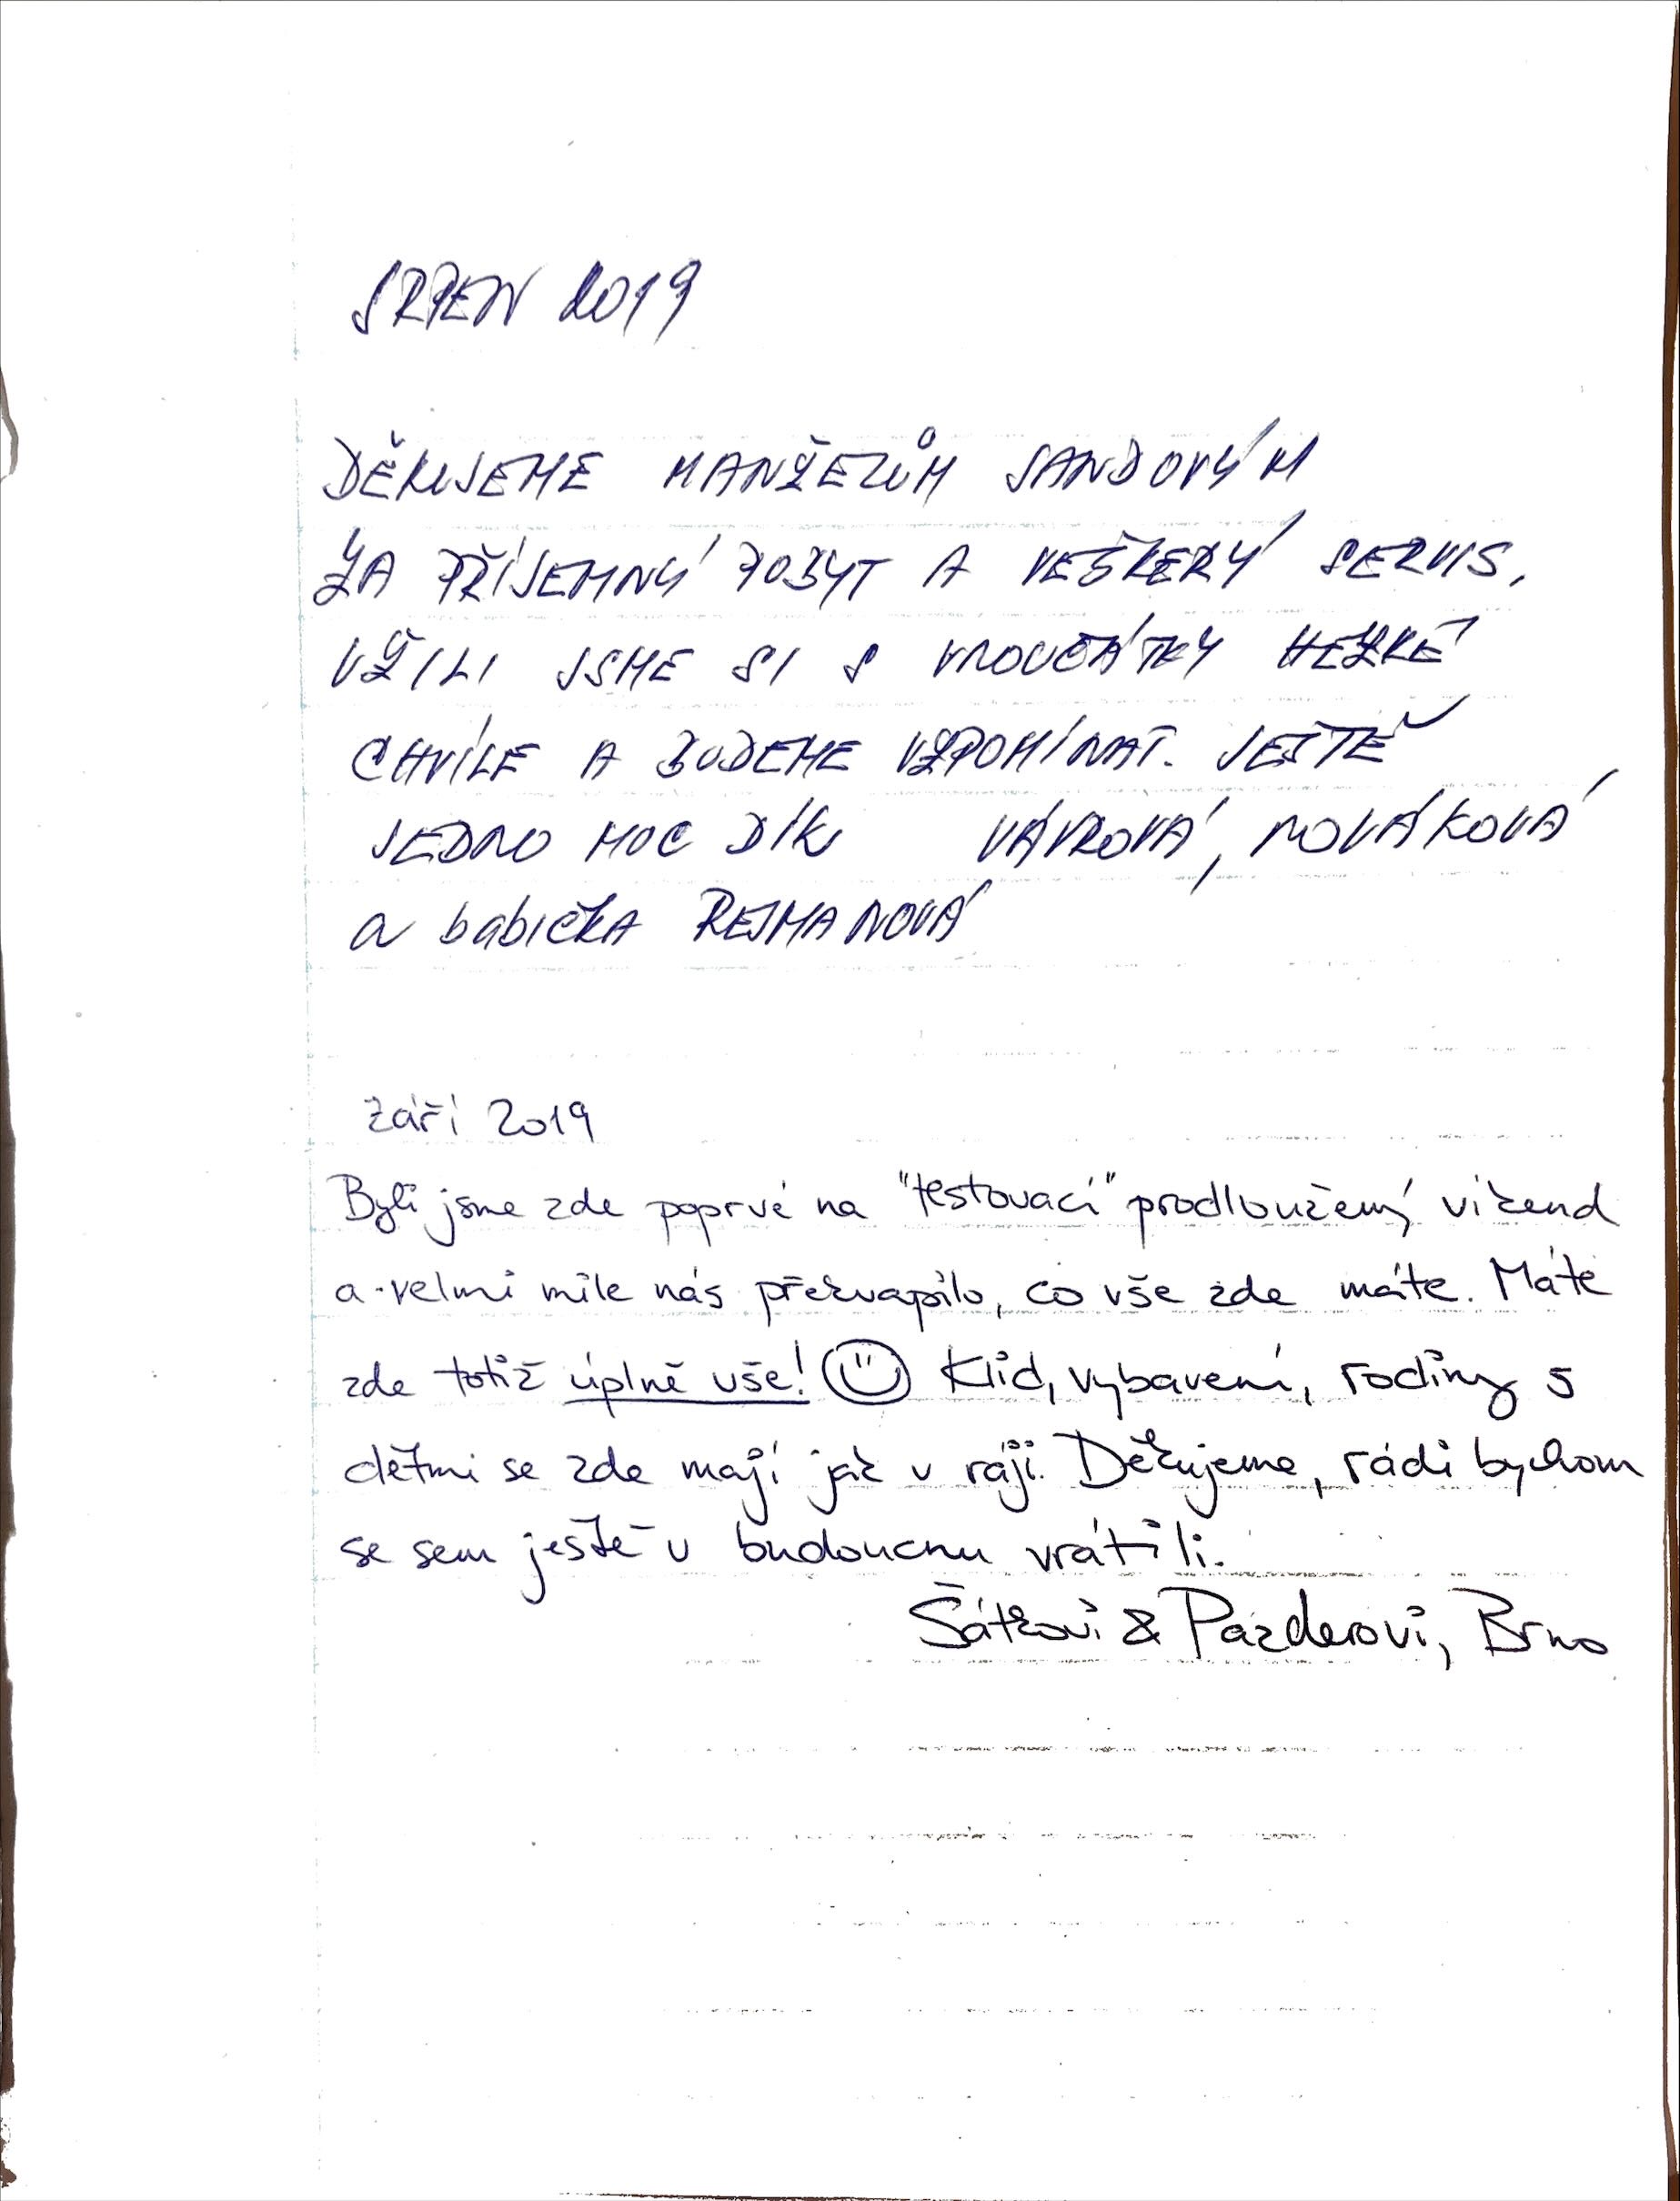 SRPEN 2019
DĚKUJEME MANŽELŮM SANDOVÝM
ZA PŘÍJEMNÝ POBYT A VEŠKERÝ SERVIS,
UŽILI JSME SI S VNOUČÁTKY HEZKÉ
CHVÍLE A BUDEME VZPOMÍNAT. JEŠTĚ
JEDNO MOC DÍK VÁVROVÁ, NOVÁKOVÁ
a babička REJMANOVÁ
září 2019
Byli jsme zde poprvé na "testovací" prodloužený víkend
a velmi mile nás překvapilo, co vše zde máte. Máte
zde totiž úplně vše! ☺ Klid, vybavení, rodiny s
dětmi se zde mají jak v ráji. Děkujeme, rádi bychom
se sem ještě v budoucnu vrátili.
Šátkovi & Pazderovi, Brno